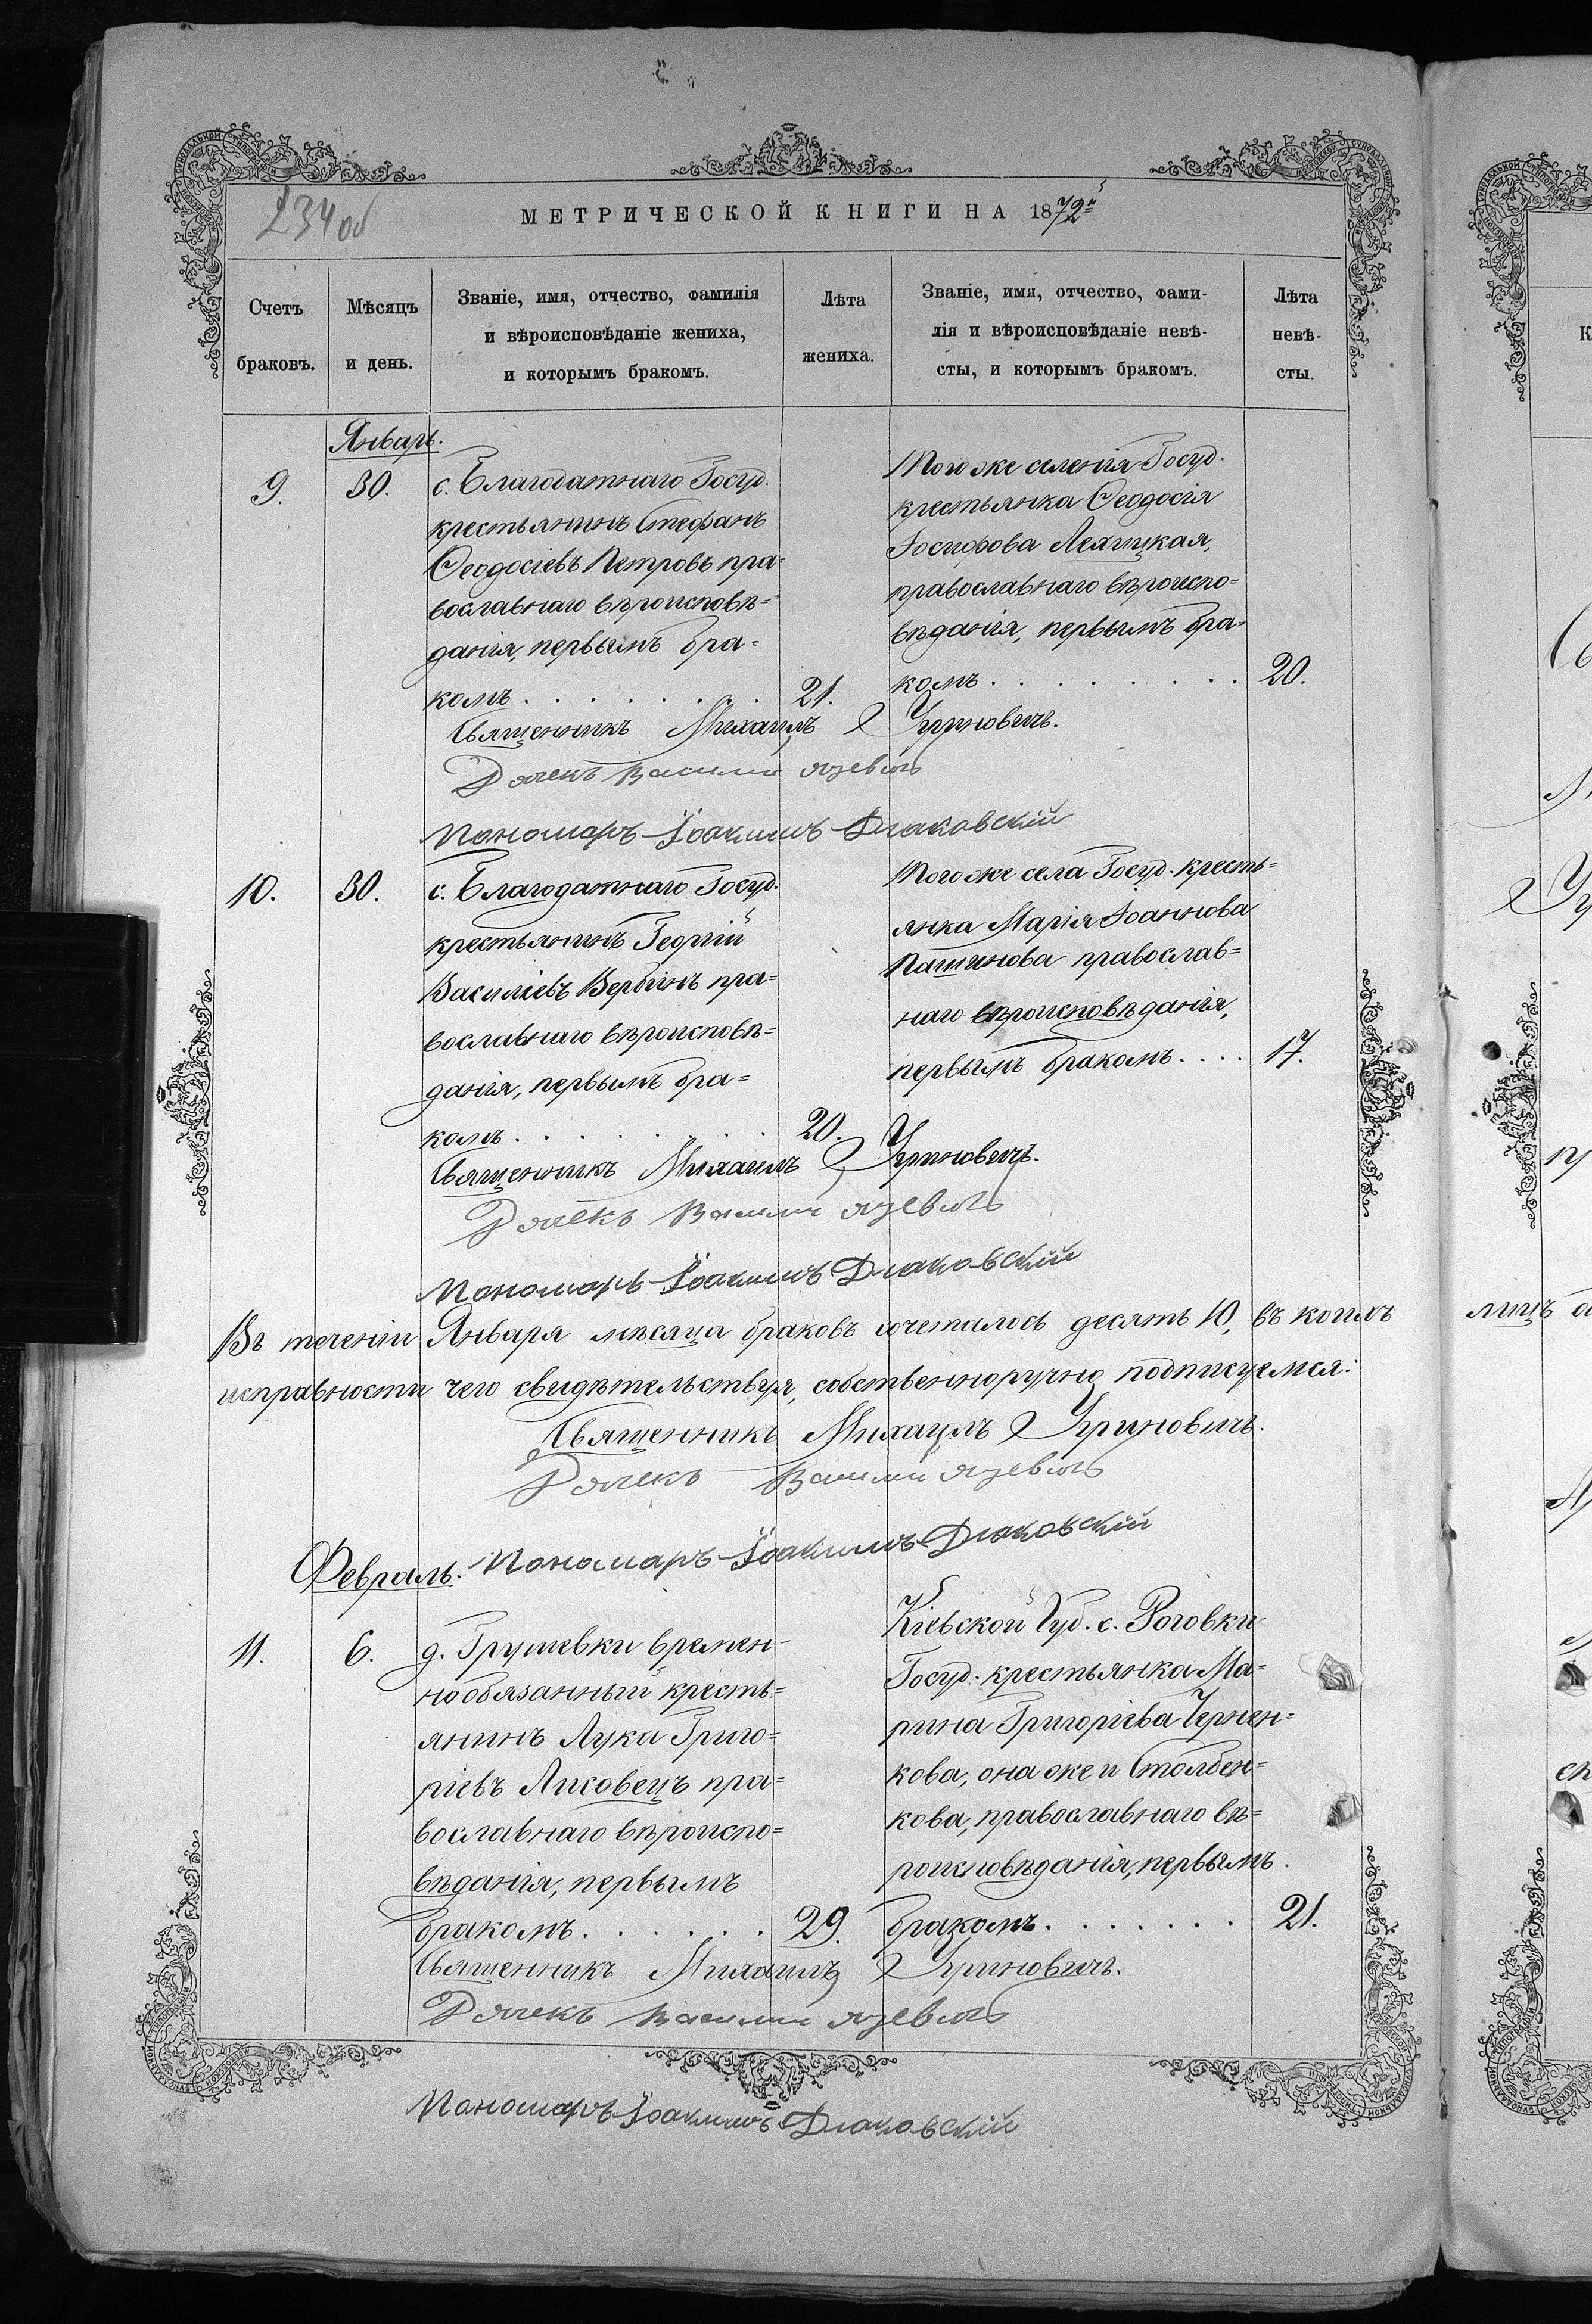 234 об
МЕТРИЧЕСКОЙ КНИГИ НА 1872й
Счетъ браковъ.
Мѣсяцъ и день.
Званіе, имя, отчество, фамилія
и вѣроисповѣданіе жениха,
и которымъ бракомъ.
Лѣта
жениха.
Званіе, имя, отчество, фами-
лія и вѣроисповѣданіе невѣ-
сты, и которымъ бракомъ.
Лѣта
невѣ-
сты.
Январь.
9.
30.
с. Благодатнаго Госуд.
крестьянинъ Стефанъ
Ѳеодосіевъ Петровъ пра=
вославнаго вѣроисповѣ=
данія, первымъ бра=
комъ . . . . . . . . 21.
Того же селенія Госуд.
крестьянка Ѳеодосія
Іосифова Лелицкая,
православнаго вѣроиспо=
вѣданія, первымъ бра=
комъ . . . . . . . . 20.
Священникъ Михаилъ Угриновичъ.
Дячекъ Василий
Пономаръ Іоакимъ Дьяковскій
10.
30.
с. Благодатнаго Госуд.
крестьянинъ Георгій
Василіевъ Вербинъ пра=
вославнаго вѣроисповѣ=
данія, первымъ бра=
комъ . . . . . . . . 20.
Того же села Госуд. кресть=
янка Марія Іоаннова
Пашинова православ=
наго вѣроисповѣданія,
первымъ бракомъ . . . . 17.
Священникъ Михаилъ Угриновичъ.
Дячекъ Василий
Пономаръ Іоакимъ Дьяковскій
Въ теченіи Января мѣсяца браковъ сочеталось десять 10, въ коихъ
исправности чего свидѣтельствуя, собственноручно подписуемся:
Священникъ Михаилъ Угриновичъ.
Дячекъ Василий
Пономаръ Іоакимъ Дьяковскій
Февраль.
11.
6.
д. Грушевки времен-
но обязанный кресть=
янинъ Лука Григо=
ріевъ Лисовецъ пра=
вославнаго вѣроиспо=
вѣданія, первымъ
бракомъ . . . . . . 29.
Кіевской Губ. с. Роговки
Госуд. крестьянка Ма=
рина Григоріева Чернен=
кова, она же и Столбен=
кова, православнаго вѣ=
роисповѣданія, первымъ
бракомъ . . . . . . . 21.
Священникъ Михаилъ Угриновичъ.
Дячекъ Василий
Пономаръ Іоакимъ Дьяковскій